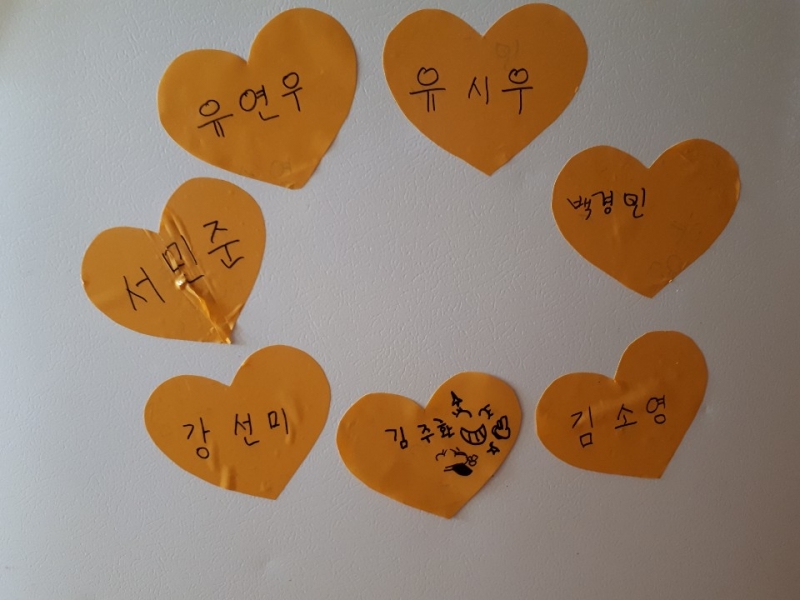 유연우
유시우
백경민
서민준
강선미
김주환
김소영